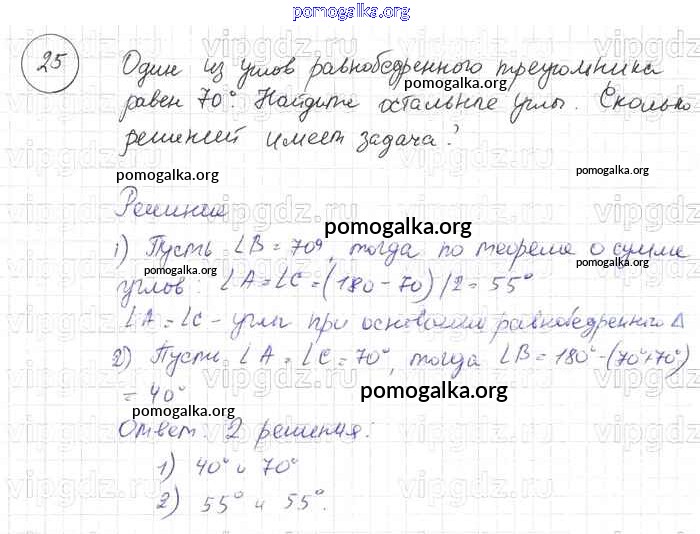 pomogalka.org
25
Один из углов равнобедренного треугольника
равен 70°. Найдите остальные углы. Сколько
решений имеет задача?
pomogalka.org
pomogalka.org
Решение
pomogalka.org
1) Пусть ∠B = 70°, тогда по теореме о сумме
pomogalka.org
pomogalka.org
углов: ∠A = ∠C = (180 - 70) / 2 = 55°
∠A = ∠C - углы при основании равнобедренного Δ
pomogalka.org
pomogalka.org
2) Пусть ∠A = ∠C = 70°, тогда ∠B = 180° - (70° + 70°)
= 40°
pomogalka.org
pomogalka.org
Ответ: 2 решения:
1) 40° и 70°
2) 55° и 55°.